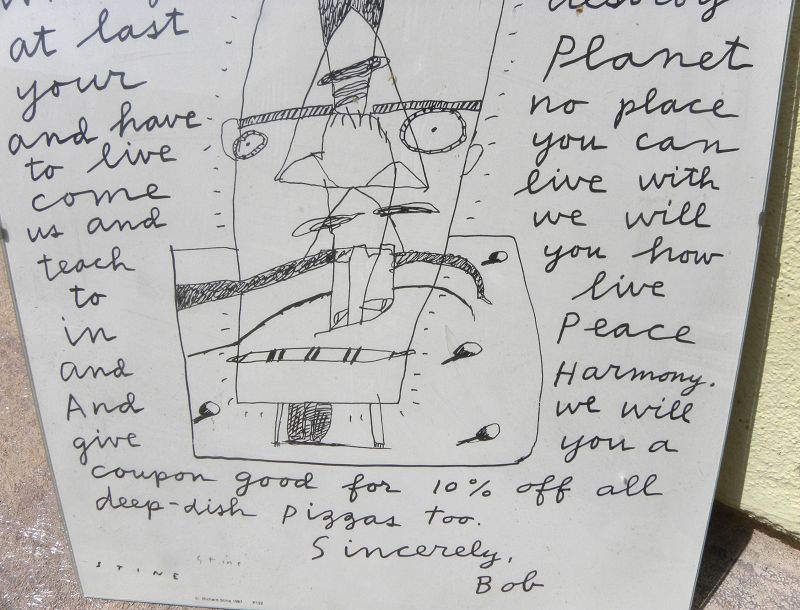 at last destroy
your Planet
and have no place
to live you can
come live with
us and we will
teach you how
to live
in Peace
and Harmony.
And we will
give you a
coupon good for 10% off all
deep-dish Pizzas too.
Sincerely,
Bob
STINE Stine
© Richard Stine 1987